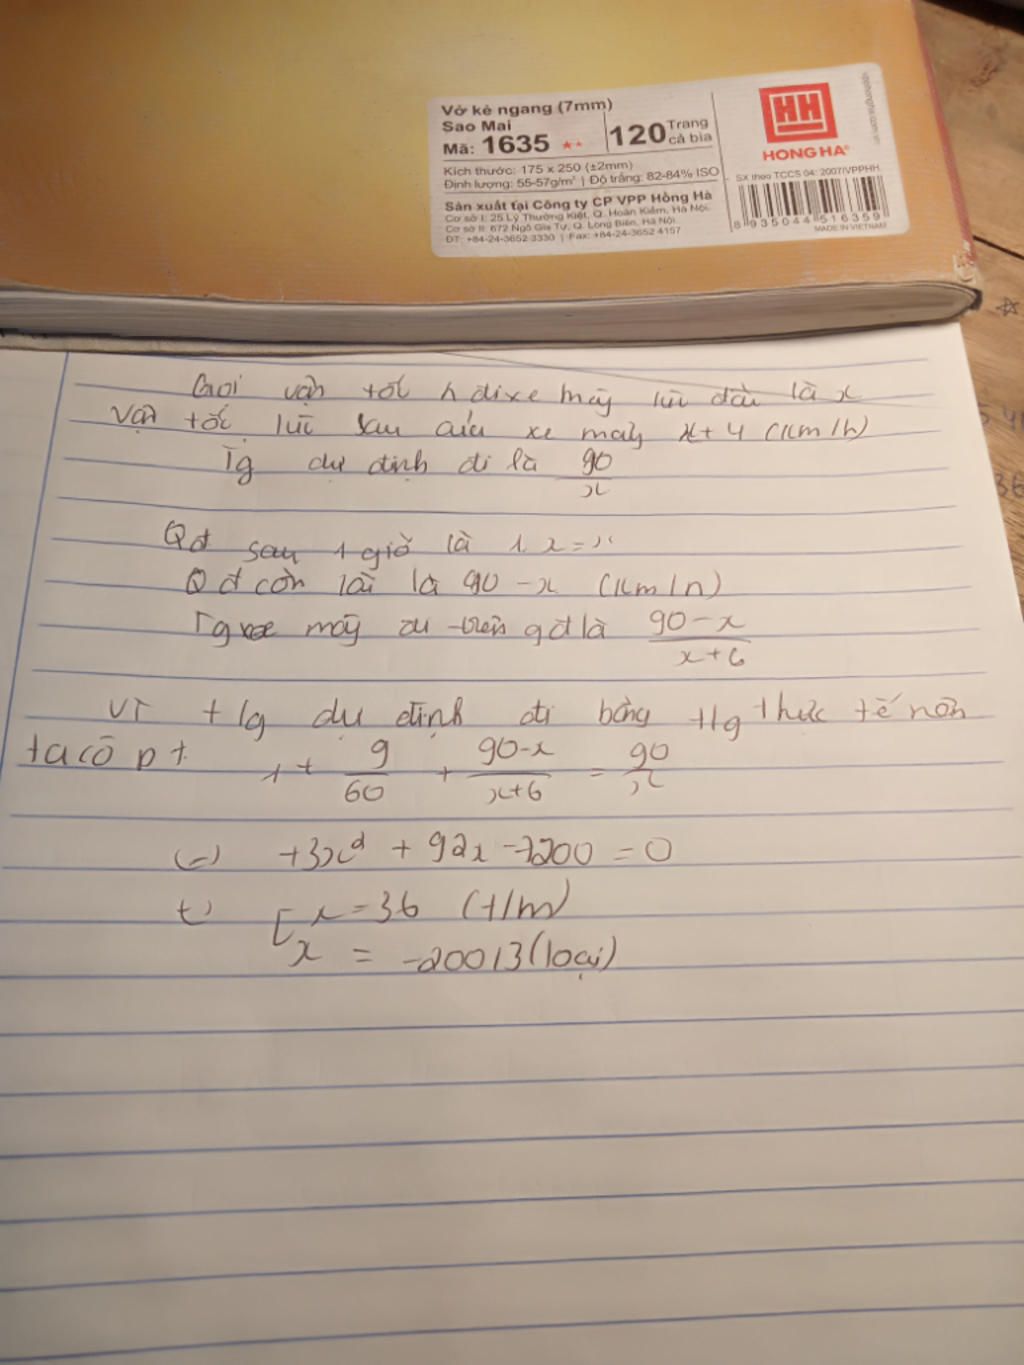 Vở kẻ ngang (7mm)
Sao Mai
Mã: 1635 ★★
120 Trang cả bìa
Kích thước: 175 x 250 (±2mm)
Định lượng: 55-57g/m² | Độ trắng: 82-84% ISO
Sản xuất tại Công ty CP VPP Hồng Hà
Cơ sở I: 25 Lý Thường Kiệt, Q. Hoàn Kiếm, Hà Nội.
Cơ sở II: 672 Ngô Gia Tự, Q. Long Biên, Hà Nội
ĐT: +84-24-3652 3330 | Fax: +84-24-3652 4157
HH
HONG HA®
SX theo TCCS 04: 2007/VPPHH
8 935044 516359
MADE IN VIETNAM
Gọi vận tốc xe máy lúc đầu là x
Vận tốc lúc sau của xe máy x+4 (km/h)
Tg dự định đi là 90/x
Qđ sau 1 giờ là 1.x=x
Qđ còn lại là 90-x (km/h)
Tg xe máy đi trên qđ là (90-x)/(x+6)
Vì tg dự định đi bằng tg thực tế nên
ta có pt 1+ 9/60 + (90-x)/(x+6) = 90/x
(=) +3x² + 92x -7200 = 0
[x=36 (t/m)
x = -200/3 (loại)